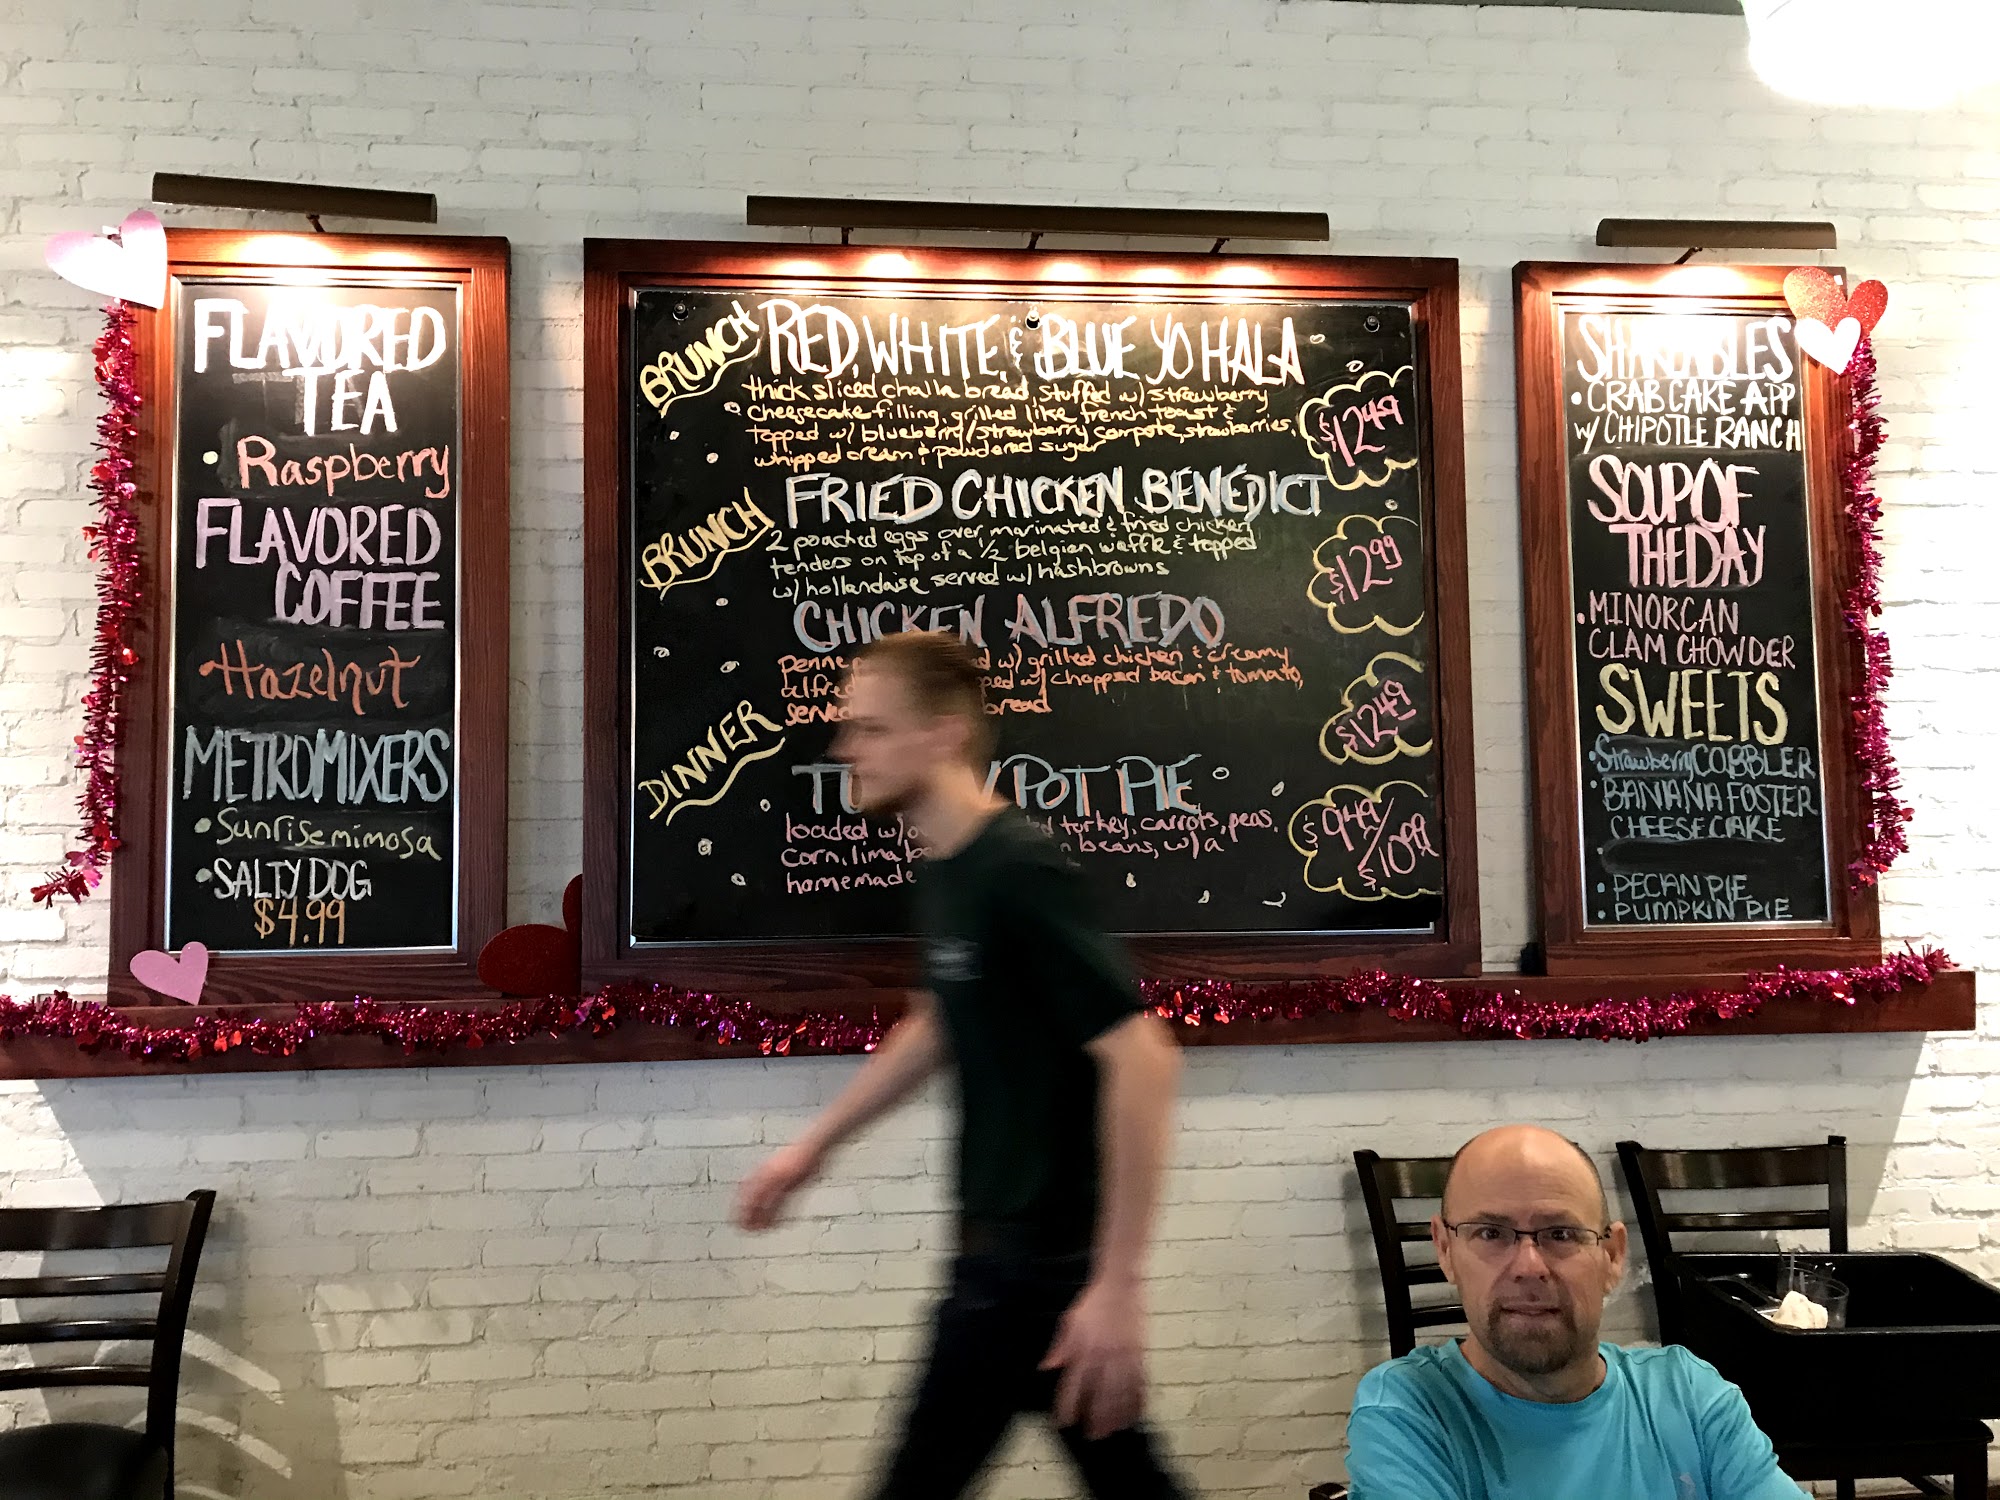 FLAVORED
TEA
• Raspberry
FLAVORED
COFFEE
• Hazelnut
METROMIXERS
• Sunrise mimosa
• SALTY DOG
$4.99
BRUNCH
RED, WHITE, & BLUE YO HALA
thick sliced challa bread, stuffed w/ strawberry
cheesecake filling, grilled like french toast &
topped w/ blueberry/strawberry compote, strawberries,
whipped cream & powdered sugar
$12.49
BRUNCH
FRIED CHICKEN BENEDICT
2 poached eggs over marinated & fried chicken
tenders on top of a 1/2 belgian waffle & topped
w/ hollandaise served w/ hashbrowns
$12.99
DINNER
CHICKEN ALFREDO
penne w/ grilled chicken & creamy
w/ chopped bacon & tomato,
served bread
$12.49
POT PIE
loaded w/ turkey, carrots, peas,
corn, lima beans, w/ a
homemade
$9.49/$10.99
SHARABLES
• CRAB CAKE APP
w/ CHIPOTLE RANCH
SOUP OF
THE DAY
• MINORCAN
CLAM CHOWDER
SWEETS
• Strawberry COBBLER
• BANANA FOSTER
CHEESECAKE
• PECAN PIE
• PUMPKIN PIE